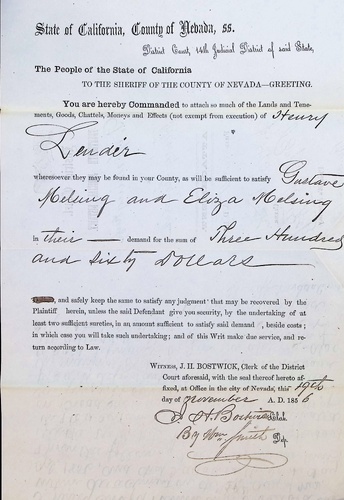 State of California, County of Nevada, ss.
District Court, 14th Judicial District of said State,
The People of the State of California
TO THE SHERIFF OF THE COUNTY OF NEVADA—GREETING.
You are hereby Commanded to attach so much of the Lands and Tene-
ments, Goods, Chattels, Moneys and Effects (not exempt from execution) of Henry
Lender
wheresoever they may be found in your County, as will be sufficient to satisfy Gustave
Melsing and Eliza Melsing
in their — demand for the sum of Three Hundred
and sixty Dollars
, and safely keep the same to satisfy any judgment that may be recovered by the
Plaintiff herein, unless the said Defendant give you security, by the undertaking of at
least two sufficient sureties, in an amount sufficient to satisfy said demand , beside costs;
in which case you will take such undertaking; and of this Writ make due service, and re-
turn according to Law.
WITNESS, J. H. BOSTWICK, Clerk of the District
Court aforesaid, with the seal thereof hereto af-
fixed, at Office in the city of Nevada, this 19th
day of November A. D. 1856
J. H. Bostwick Clerk
By Wm. Smith Dep.